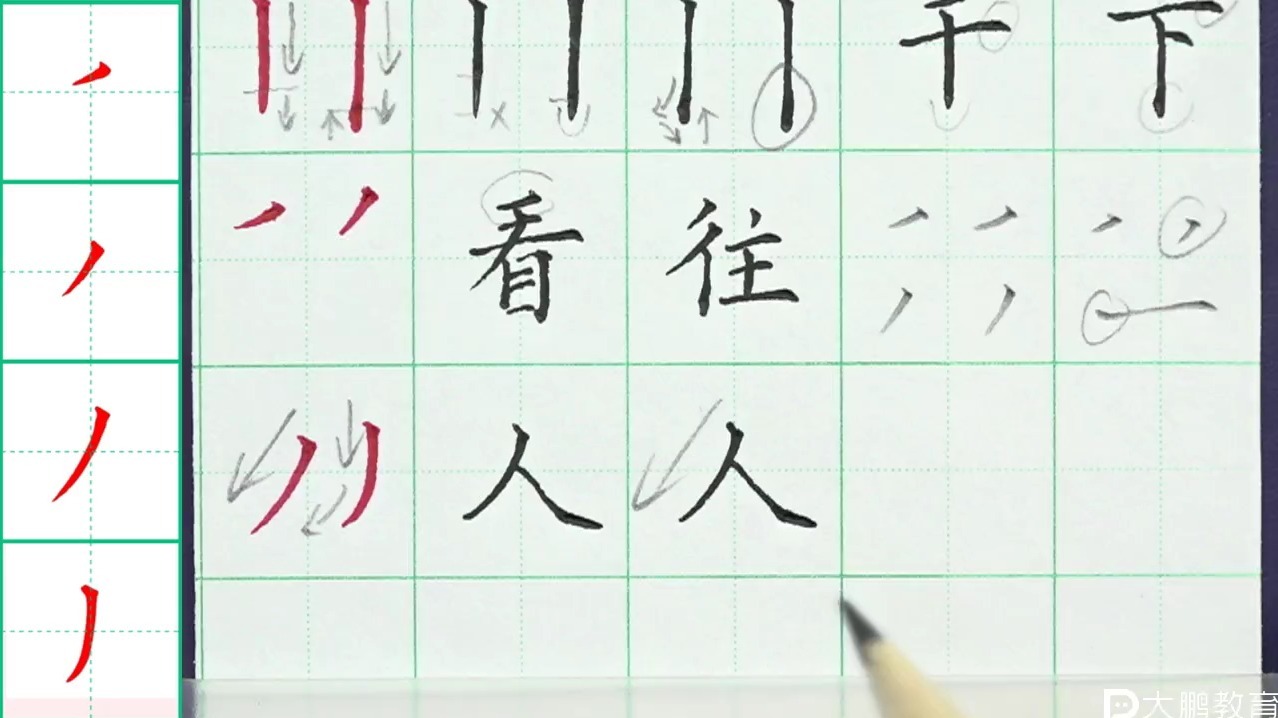 下
看 往
人 人
大鹏教育